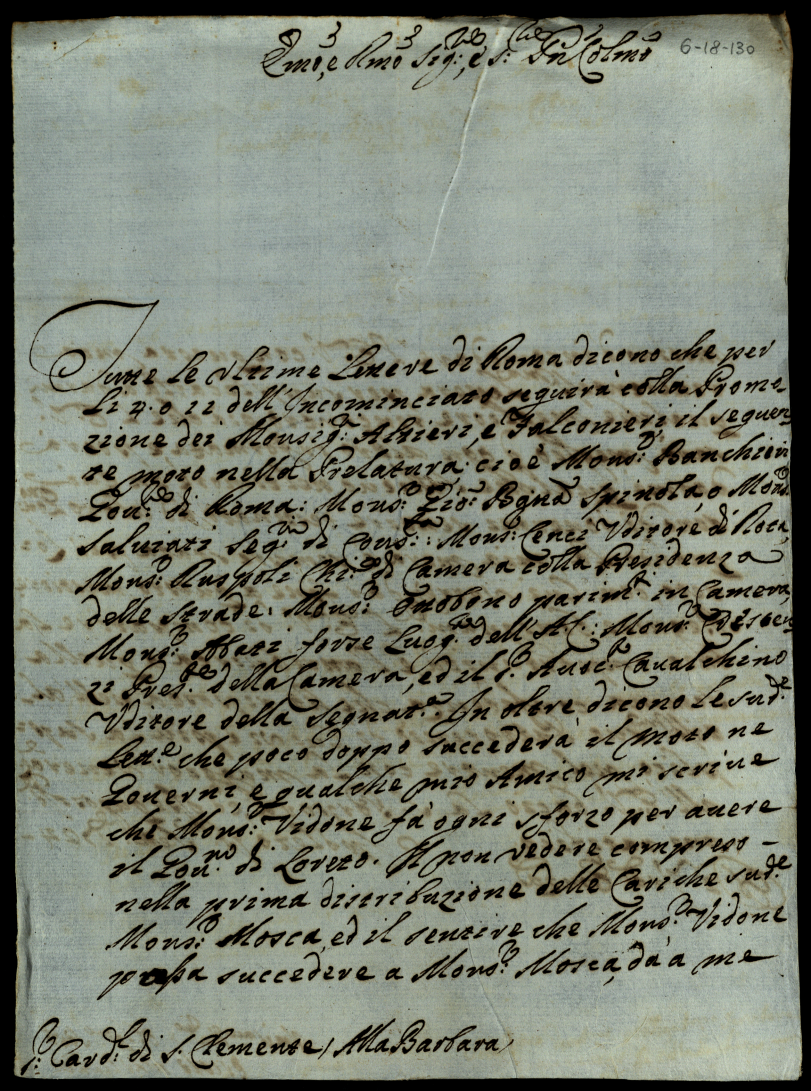 Emo, e Rmo Sig:re, e S: Pñ Colmo
6-18-130
Tutte le vltime Lettere di Roma dicono che per
li 4. o 11 dell'Incominciato seguirà colla Promo-
zione dei Monsig:ri Altieri, e Falconieri il seguen-
te moto nella Prelatura: cioè Mons:r Banchieri
Gou:re di Roma: Mons:r Gio: Bgna Spinola, o Mons:r
Saluiati Seg:rio di Cons:ta: Mons:r Cenci Vditore di Rota,
Mons:r Ruspoli Chi:co di Camera colla Presidenza
delle Strade: Mons:r Ottobono parim:te in Camera,
Mons:r Abati forse Luog:te dell'AC: Mons:r
Pres:te della Camera, ed il S:r Auoc:to Caualchino
Vditore della Segnat:a. In oltre dicono le sud:e
Lett:e che poco doppo succederà il moto ne
Gouerni, e qualche mio Amico mi scriue
che Mons:r Vidone fà ogni sforzo per auere
il Gou:no di Loreto. Il non vedere compreso -
nella prima distribuzione delle Cariche sud:e
Mons:r Mosca, ed il sentire che Mons:r Vidone
possa succedere a Mons:r Mosca, dà a me
S:r Card:l di S. Clemente / Alla Barbara